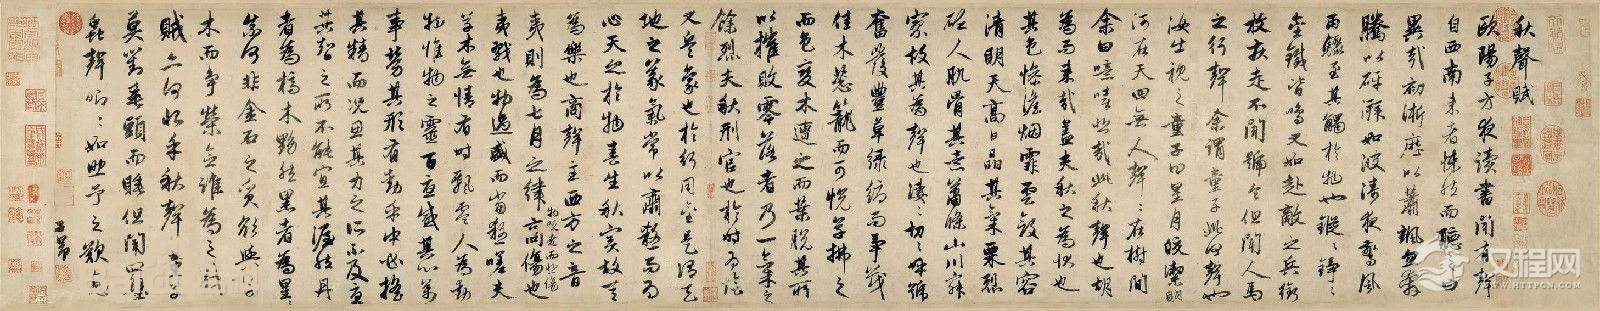 秋聲賦
歐陽子方夜讀書聞有聲
自西南來者悚然而聽之曰
異哉初淅瀝以蕭颯忽奔
騰以砰湃如波濤夜驚風
雨驟至其觸於物也鏦〻錚〻
金鐵皆鳴又如赴敵之兵銜
枚疾走不聞號令但聞人馬
之行聲余謂童子此何聲也
汝出視之童子曰星月皎潔明
河在天四無人聲〻在樹間
余曰噫嘻悲哉此秋聲也胡
為而来哉蓋夫秋之為狀也
其色慘澹烟霏雲斂其容
清明天高日晶其氣栗烈
砭人肌骨其意蕭條山川寂
寥故其為聲也淒〻切〻呼號
奮發豐草綠縟而爭茂
佳木葱蘢而可悅草拂之
而色變木遭之而葉脫其所
以摧敗零落者乃一氣之
餘烈夫秋刑官也於時為陰
又兵象也於行用金是謂天
地之義氣常以肅殺而為
心天之於物春生秋實故其
為樂也商聲主西方之音
夷則為七月之律商傷也
物既老而悲傷
夷戮也物過盛而當殺嗟夫
草木無情有時飄零人為動
物惟物之靈百憂感其心萬
事勞其形有動乎中必搖
其精而況思其力之所不及憂
其智之所不能宜其渥然丹
者為槁木黟然黑者為星〻
奈何非金石之質欲與草
木而爭榮念誰為之戕
賊亦何恨乎秋聲童子
莫對垂頭而睡但聞四壁
蟲聲唧〻如助予之歎息
子昂
又程网
WWW.HTTPCN.COM